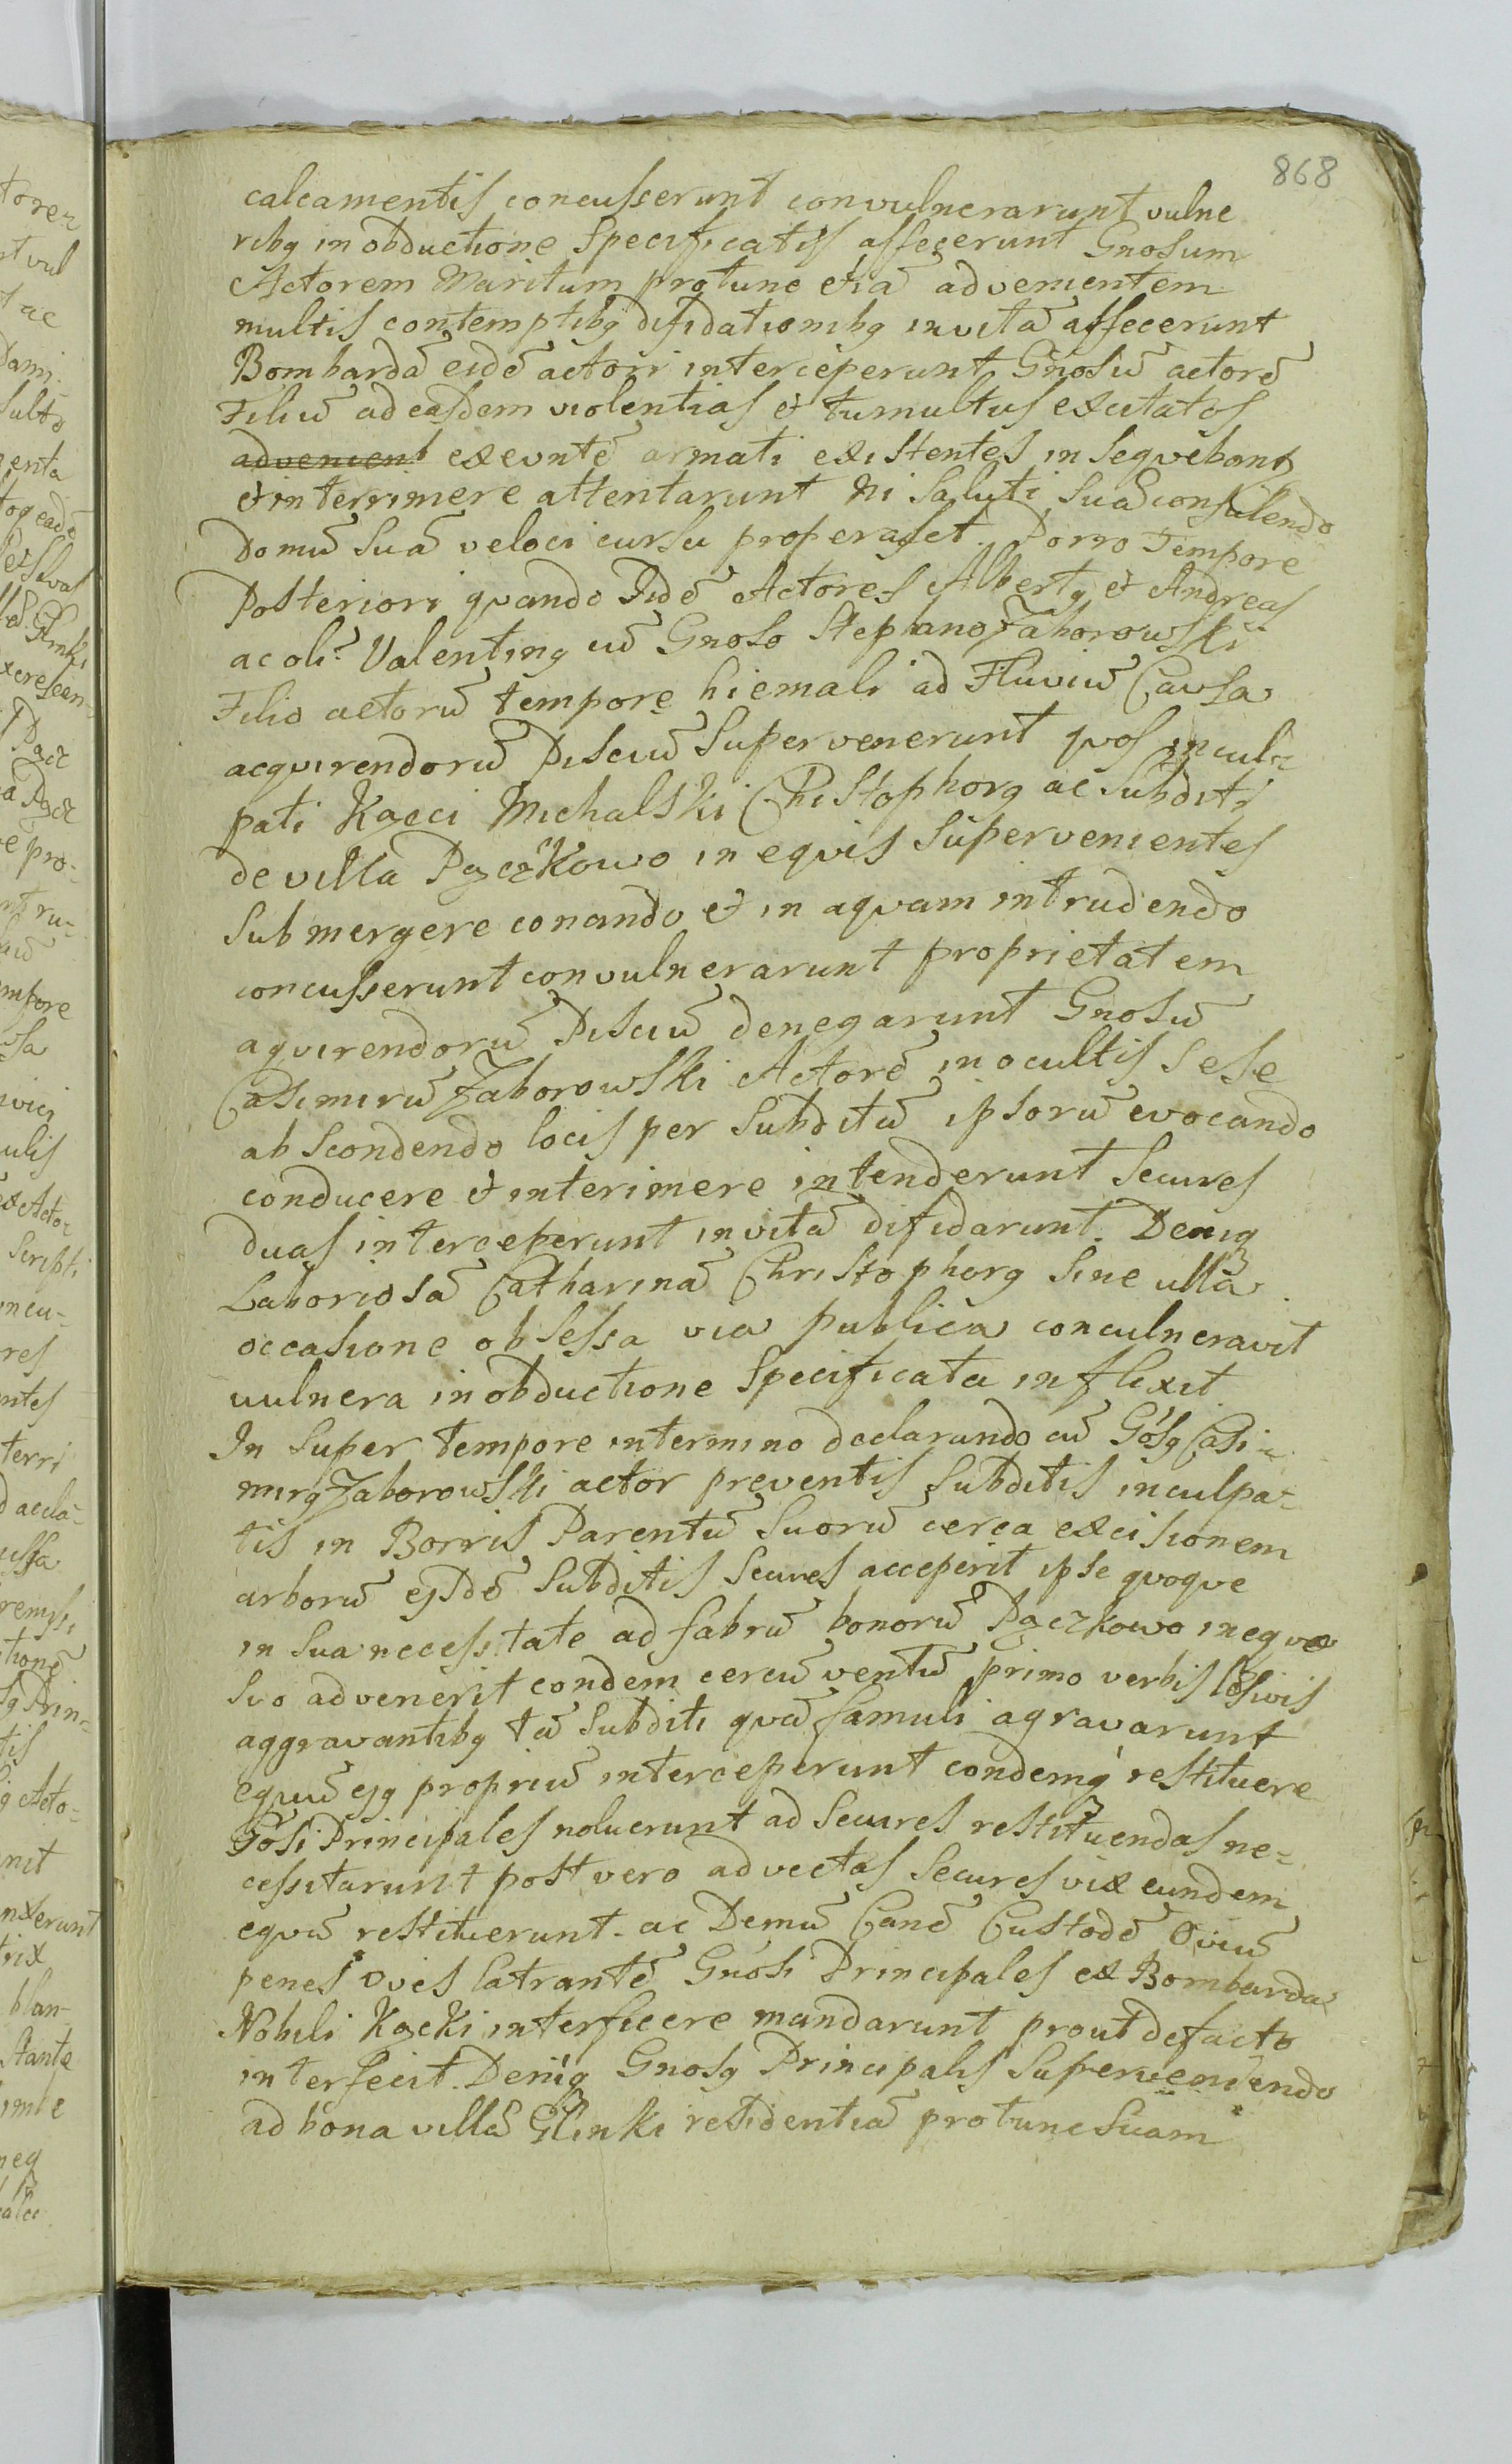 868
calcamentis concusserunt convulnerarunt vulne
ribq in obductione Specificatis affecerunt Gnosum
Actorem Maritum protunc etiā advenientem
multis contemptibq difidationibq in vitā affecerunt
Bombardā eidē actori interceperunt Gnosū actorē
Filiū ad easdem violentias et tumultus excitatos
advenient exeuntē armati existentes insequebant
et interrimere attentarunt Ni Saluti Suā consulendo
Domū Suā veloci cursu properasset. Porro Tempore
Posteriori quando Iidē Actores Albertq et Andreas
ac oli Valentinq cū Gnoso Stephano Zaborowski
Filio actorū tempore hiemali ad Fluviū Causa
acquirendorū Pisciū Supervenerunt quos incul-
pati Kącci Michalski Christophorq ac Subditi
de villa Pączkowo in equis Supervenientes
Submergere conando et in aquam intrudendo
concusserunt convulnerarunt proprietatem
aquirendorū Pisciū denegarunt Gnosū
Casimirū Zaborowski Actorē in ocultis Sese
abscondendo locis per Subditū ipsorū evocando
conducere et interimere intenderunt Secures
duas interceperunt in vitā difidarunt. Deniq
Laboriosā Catharinā Christophorq Sine ulla
occasione obsessa via publica conculneravit
vulnera in obductione Specificata inflixit
In Super tempore in termino declarando cū Gósq Casi-
mirq Zaborowski actor preventis Subditis inculpa-
tis in Borris Parentū Suorū cerca excisionem
arborū ejsdē Subditis Secures acceperit ipse quoque
in Sua necessitate ad fabrū bonorū Pączkowo in equo
Suo advenerit eondem cercūventū primo verbis
aggravantibq tā Subditi quā famuli agravarunt
equū ejq propriū interceperunt eondemq restituere
Gósi Principales noluerunt ad Secures restituendas ne-
cessitarunt post vero advectas Secures vix eundem
equū restituerunt. ac Demū Canē Custodē Oviū
penes oves latrantē Gnósi Principales ex Bombarda
Nobili Kącki interficere mandarunt prout defacto
interfecit. Deniq Gnosq Principalis Superveniendo
ad bona villā Glinki residentiā protunc Suam